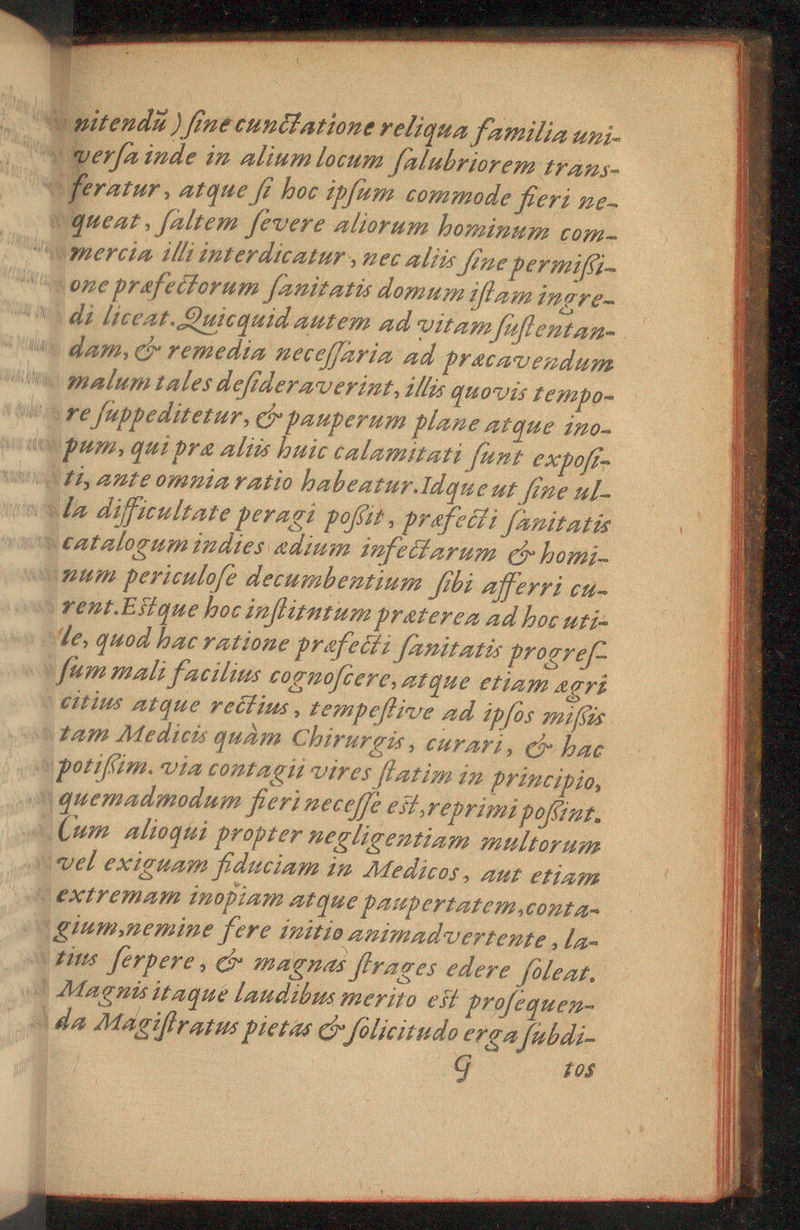 nitendū) ſine cunctatione reliqua familia uni-
verſa inde in alium locum ſalubriorem trans-
feratur, atque ſi hoc ipſum commode fieri ne-
queat, ſaltem ſevere aliorum hominum com-
mercia illi interdicatur, nec aliis ſine permiſſi-
one præfectorum ſanitatis domum iſtam ingre-
di liceat. Quicquid autem ad vitam ſuſtentan-
dam, & remedia neceſſaria ad præcavendum
malum tales deſideraverint, illis quovis tempo-
re ſuppeditetur, & pauperum plane atque ino-
pum, qui præ aliis huic calamitati ſunt expoſi-
ti, ante omnia ratio habeatur. Idque ut ſine ul-
la difficultate peragi poſſit, præfecti ſanitatis
catalogum indies ædium infectarum & homi-
num periculoſe decumbentium ſibi afferri cu-
rent. Eſtque hoc inſtitutum præterea ad hoc uti-
le, quod hac ratione præfecti ſanitatis progreſ-
ſum mali facilius cognoſcere, atque etiam ægri
citius atque rectius, tempeſtive ad ipſos miſſis
tam Medicis quàm Chirurgis, curari, & hac
potiſſim. via contagii vires ſtatim in principio,
quemadmodum fieri neceſſe eſt, reprimi poſſint.
Cum alioqui propter negligentiam multorum
vel exiguam fiduciam in Medicos, aut etiam
extremam inopiam atque paupertatem, conta-
gium, nemine fere initio animadvertente, la-
tius ſerpere, & magnas ſtrages edere ſoleat.
Magnis itaque laudibus merito eſt proſequen-
da Magiſtratus pietas & ſolicitudo erga ſubdi-
G tos